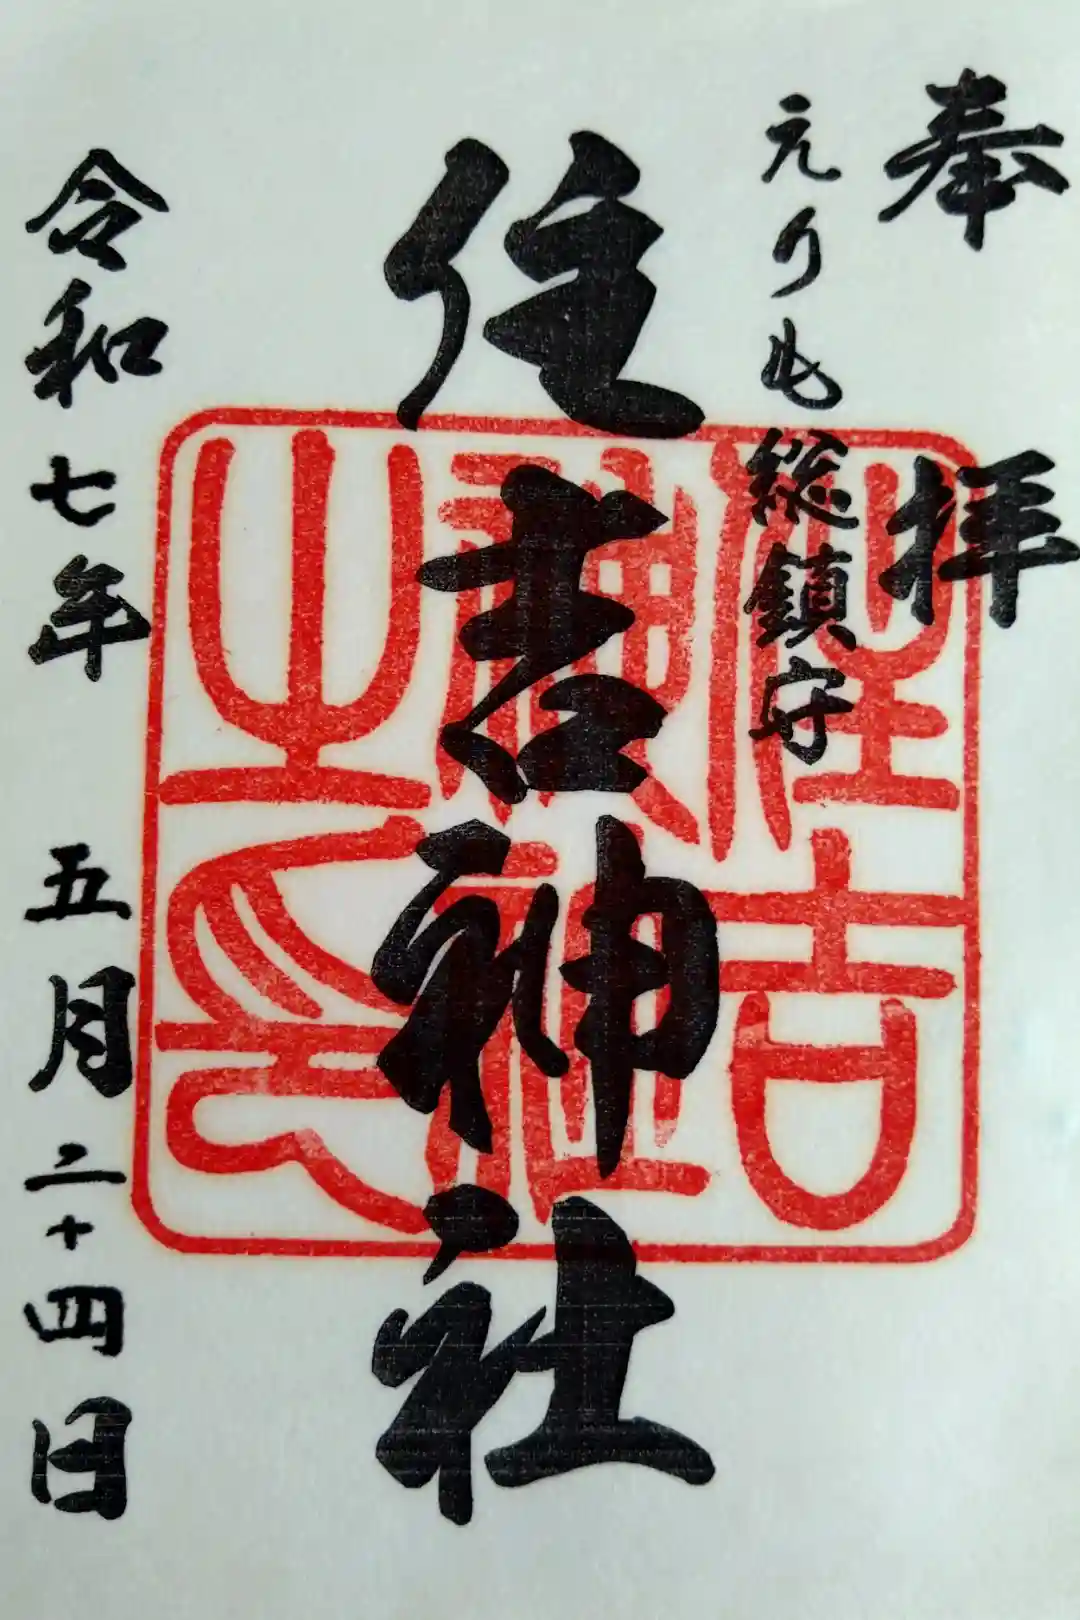 奉拝
えりも総鎮守
住吉神社
令和七年五月二十四日
住吉
神社
之印